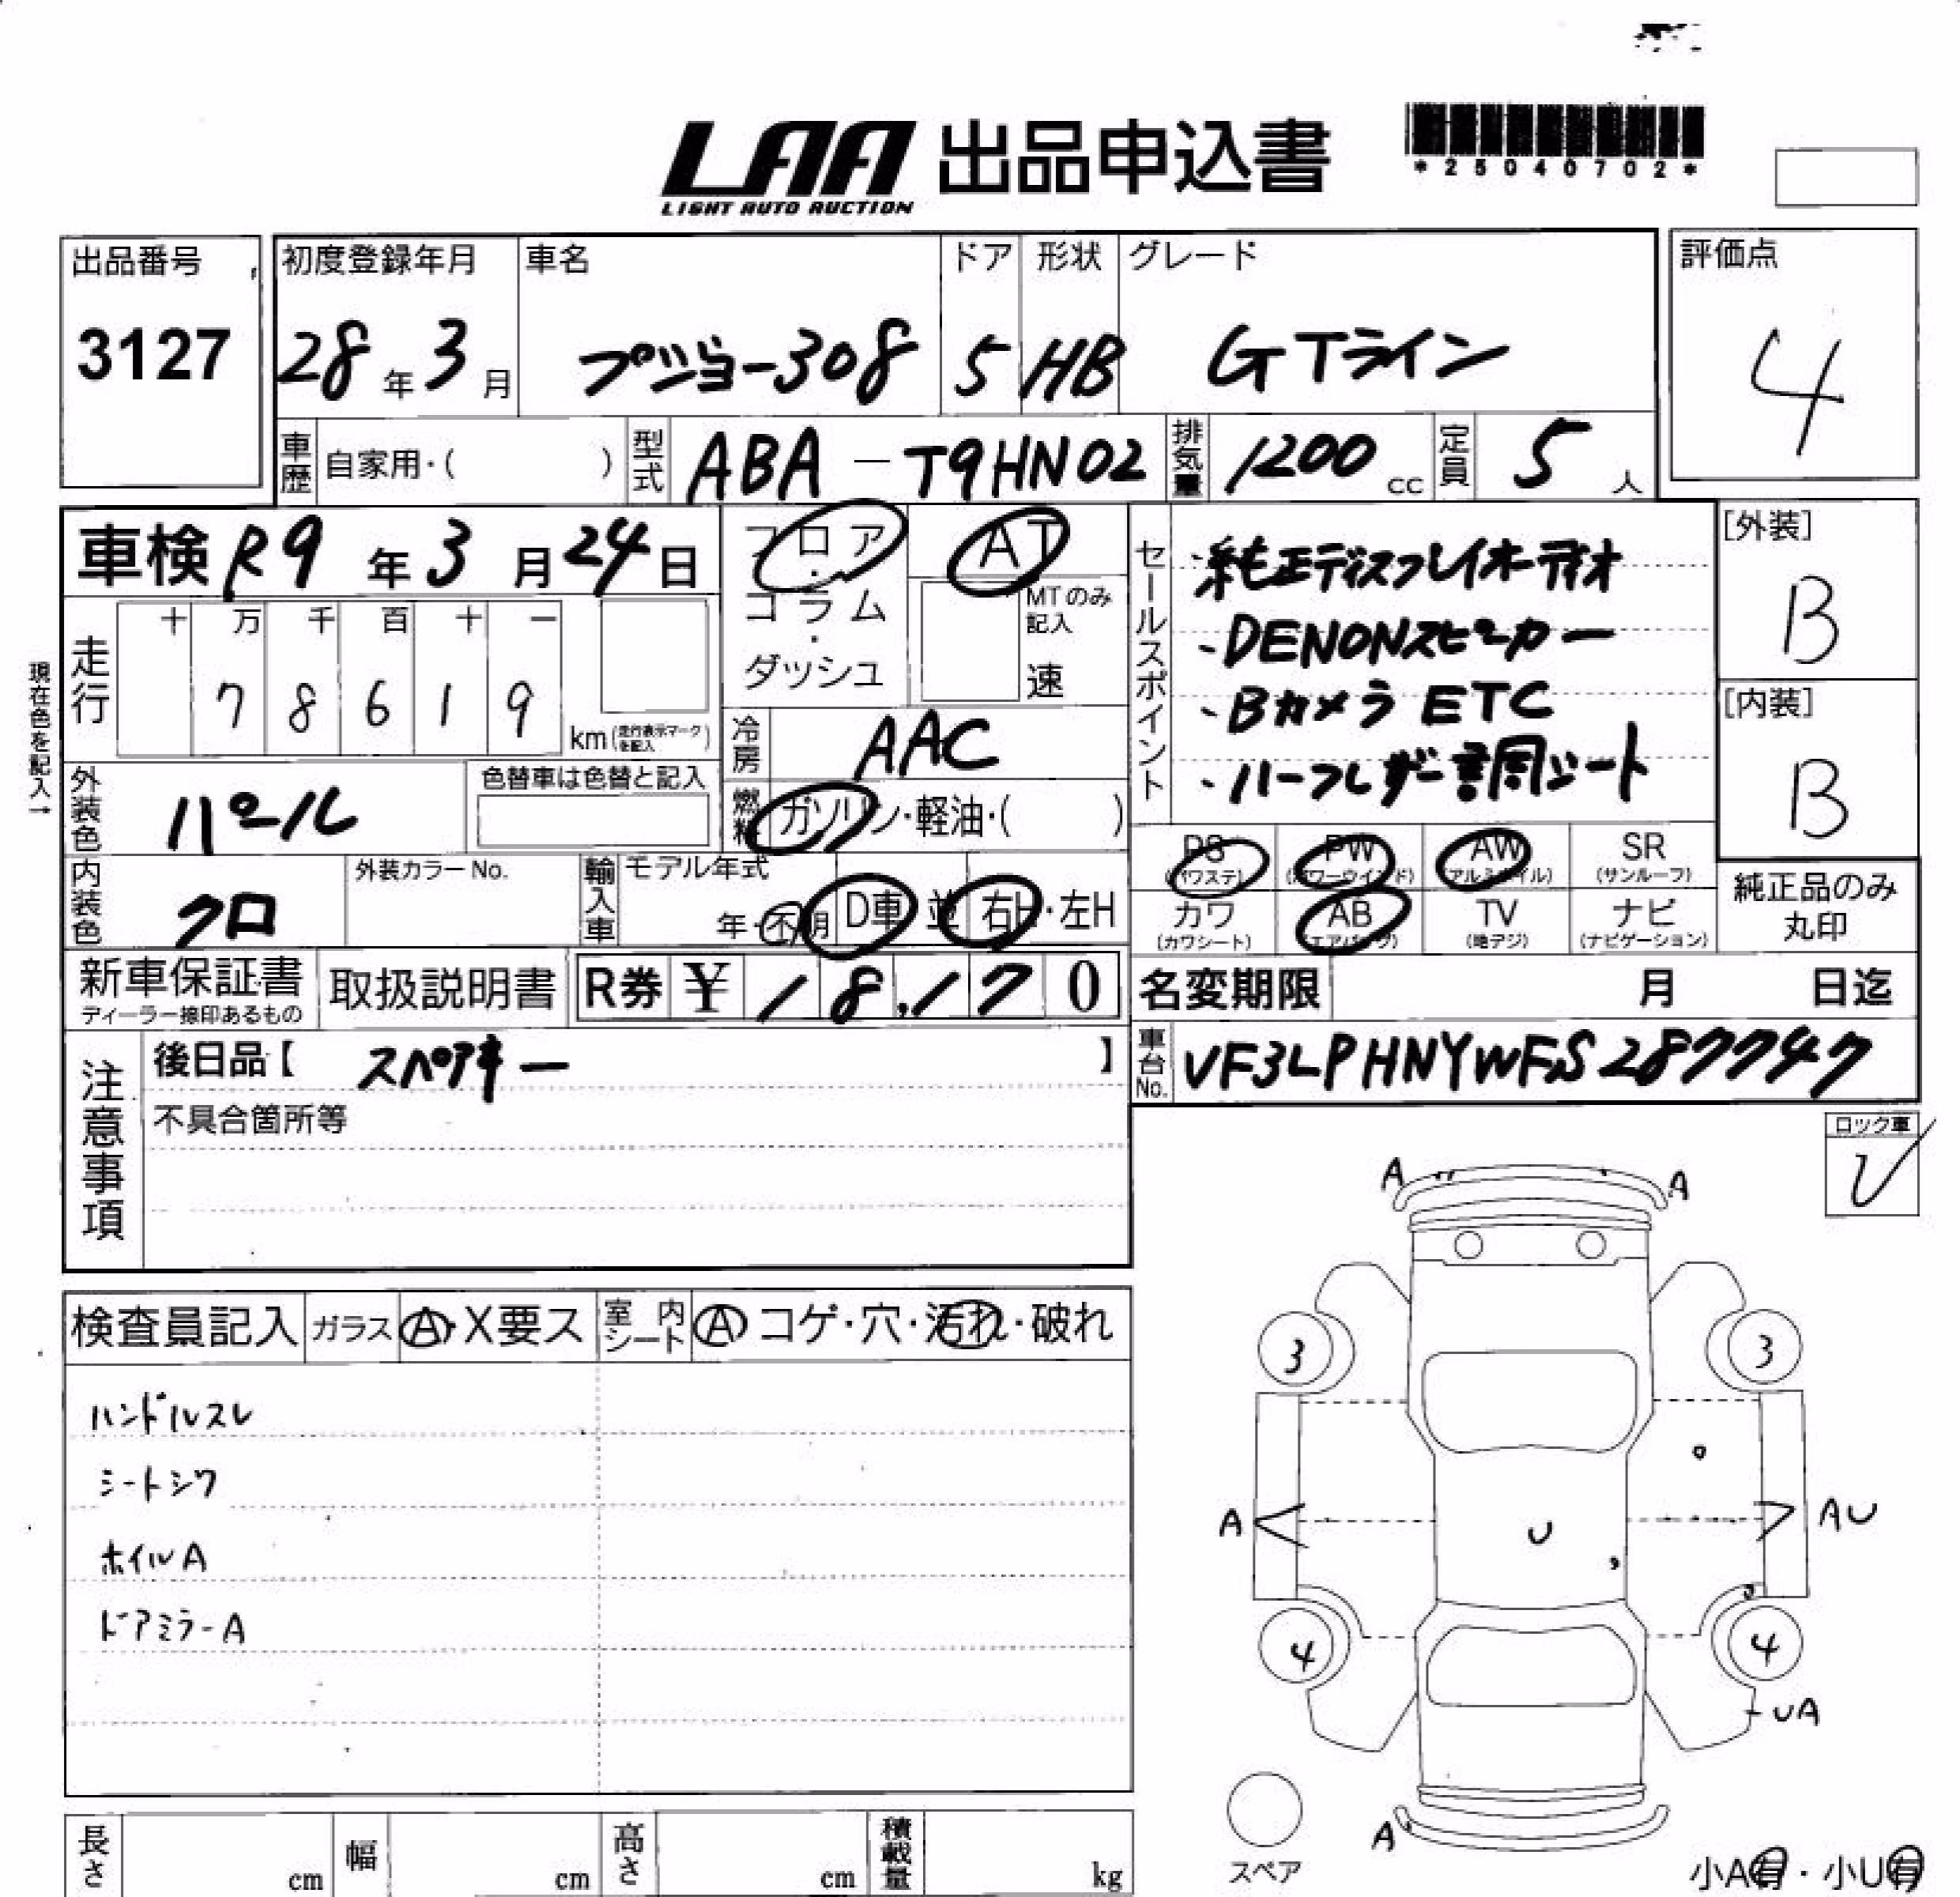 LAA 出品申込書
LIGHT AUTO AUCTION
*25040702*
出品番号 初度登録年月 車名 ドア 形状 グレード 評価点
3127 28年3月 プジョー308 5 HB GTライン 4
車歴 自家用・( ) 型式 ABA-T9HN02 排気量 1200cc 定員 5人
車検 R9年3月24日
フロア・コラム・ダッシュ
AT
MTのみ記入
速
現在色を記入→
走行
十 万 千 百 十 一
7 8 6 1 9
km(走行表示マークを記入)
冷房 AAC
燃料 ガソリン・軽油・( )
外装色 パール
色替車は色替と記入
内装色 クロ
外装カラーNo.
輸入車 モデル年式
年・不明 D車 並 右H・左H
セールスポイント
・純正ディスプレイオーディオ
・DENONスピーカー
・Bカメラ ETC
・ハーフレザー調シート
[外装]
B
[内装]
B
PS (パワステ) PW (パワーウインド) AW (アルミホイル) SR (サンルーフ)
カワ (カワシート) AB (エアバッグ) TV (地デジ) ナビ (ナビゲーション)
純正品のみ
丸印
新車保証書
ディーラー捺印あるもの
取扱説明書
R券 ¥ 18,170
名変期限 月 日迄
車台No. VF3LPHNYWFS287747
注意事項
後日品【 スペアキー 】
不具合箇所等
ロック車
レ
検査員記入 ガラス A・X要ス 室内シート A コゲ・穴・汚れ・破れ
ハンドルスレ
シートシワ
ホイルA
ドアミラーA
A A
3 3
A U AU
4 4
UA
A
スペア
小A有・小U有
長さ cm 幅 cm 高さ cm 積載量 kg